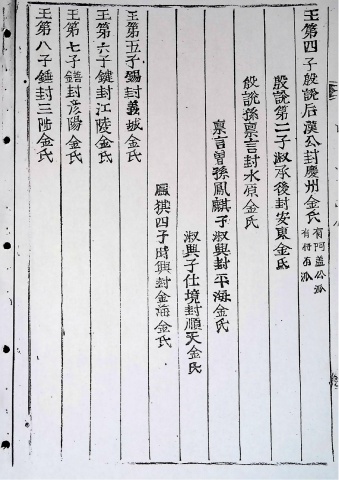 王第四子殷説后漢公封慶州金氏
有阿盖公派
有付石派
殷説第二子淑承後封安東金氏
殷説孫稟言封水原金氏
稟言曽孫鳳麒子淑興封平海金氏
淑興子仕境封順天金氏
鳳猉四子時興封金海金氏
王第五子錫封義城金氏
王第六子鍵封江陵金氏
王第七子鐥封彦陽金氏
王第八子錘封三陟金氏